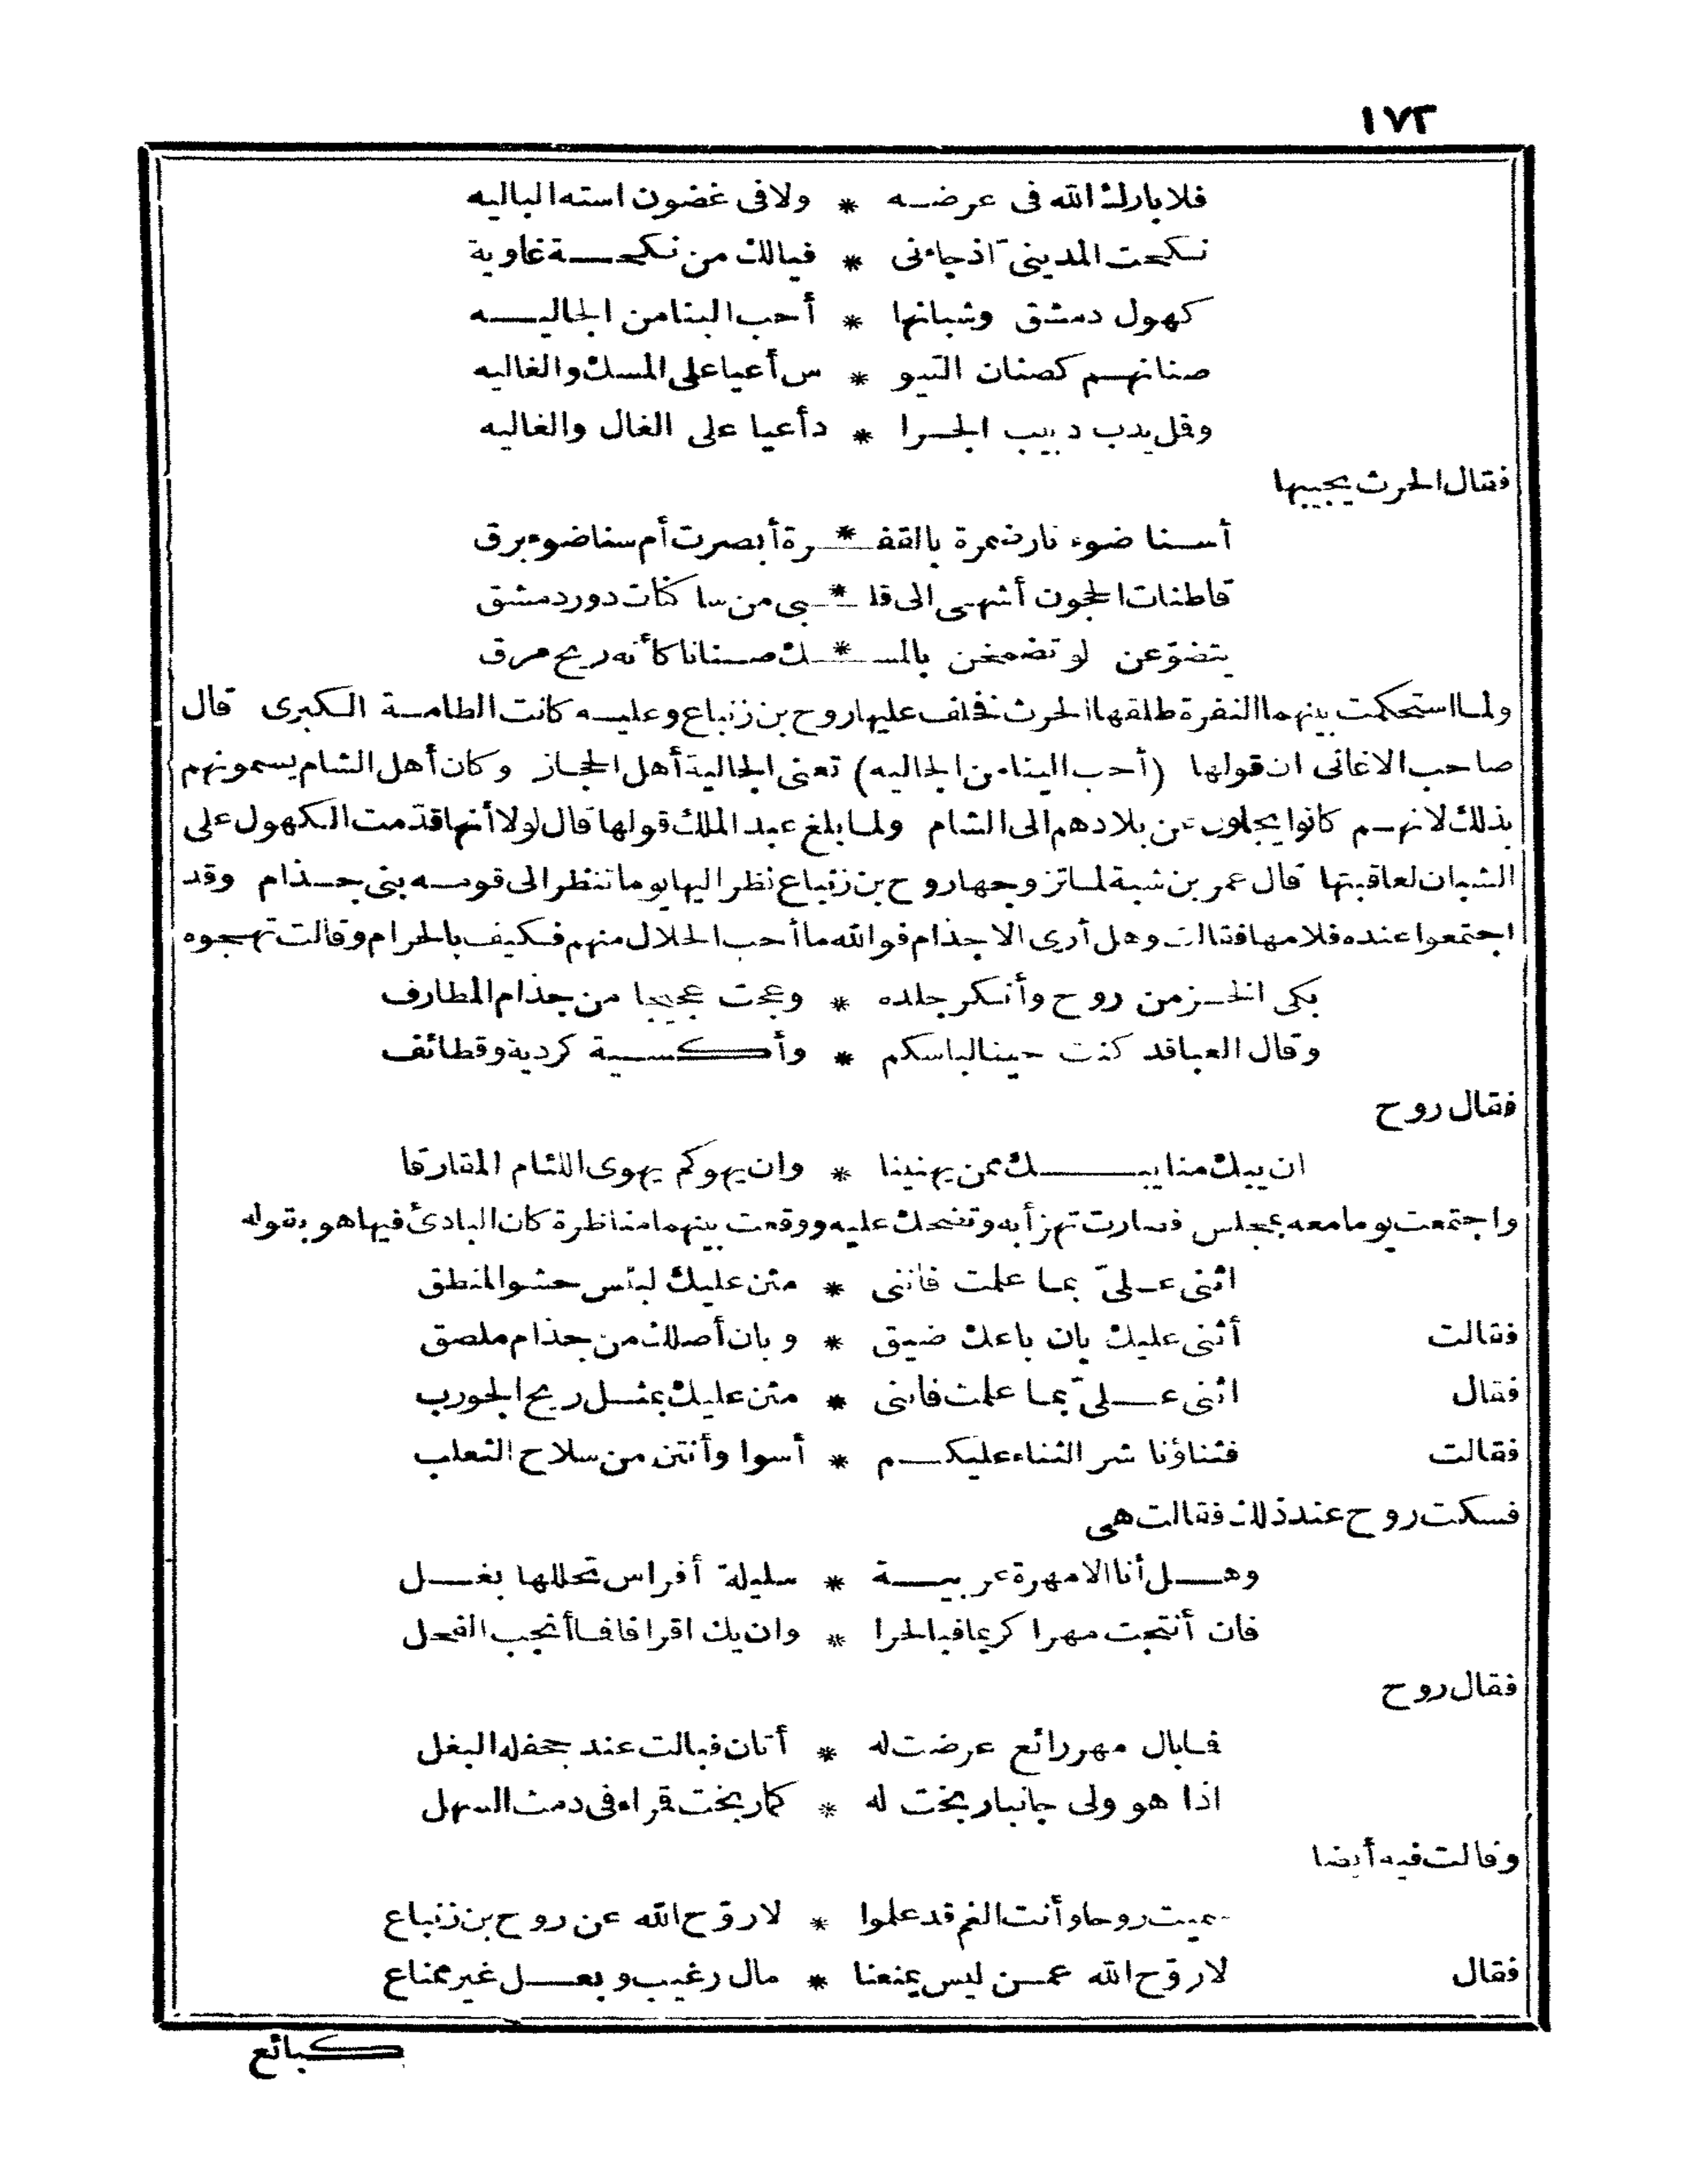 ١٧٢
فلا بارك الله فى عرضه * ولا فى غضون استه الباليه
نكحت المدينىّ اذ جاءنى * فيالك من نكحة غاوية
كهول دمشق وشبانها * أحب الينا من الجاليه
صنانهم كصنان التيو * س أعيا على المسك والغاليه
وقل يدب دبيب الجرا * د أعيا على الغال والغاليه
فقال الحرث يجيبها
أسنا ضوء نار ضمرة بالقفـ * ـرة أبصرت أم سنا ضوء برق
قاطنات الحجون أشهى الى قلـ * ـبى من ساكنات دور دمشق
يتضوّعن لو تضمخن بالمسـ * ـك صنانا كأنه ريح مرق
ولما استحكمت بينهما النفرة طلقها الحرث فخلف عليها روح بن زنباع وعليه كانت الطامة الكبرى قال
صاحب الاغانى ان قولها (أحب الينا من الجاليه) تعنى الجالية أهل الحجاز وكان أهل الشام يسمونهم
بذلك لانهم كانوا يجلون عن بلادهم الى الشام ولما بلغ عبد الملك قولها قال لولا أنها قدّمت الكهول على
الشبان لعاقبتها قال عمر بن شبة لما تزوجها روح بن زنباع نظر اليها يوما تنظر الى قومه بنى جذام وقد
اجتمعوا عنده فلامها فقالت وهل أرى الا جذام فوالله ما أحب الحلال منهم فكيف بالحرام وقالت تهجوه
بكى الخز من روح وأنكر جلده * وعجت عجيجا من جذام المطارف
وقال العبا قد كنت حينا لباسكم * وأكسية كردية وقطائف
فقال روح
ان يبك منا يبك ممن يهيننا * وان يهوكم يهوى اللئام المقارقا
واجتمعت يوما معه بمجلس فصارت تهزأ به وتضحك عليه ووقعت بينهما مناظرة كان البادئ فيها هو بقوله
اثنى علىّ بما علمت فاننى * مثن عليك لبئس حشو المنطق
فقالت أثنى عليك بان باعك ضيق * وبان أصلك من جذام ملصق
فقال اثنى علىّ بما علمت فاننى * مثن عليك بمثل ريح الجورب
فقالت فثناؤنا شر الثناء عليكم * أسوا وأنتن من سلاح الثعلب
فسكت روح عند ذلك فقالت هى
وهل أنا الا مهرة عربية * سليلة أفراس تحللها بغل
فان أنتجت مهرا كريما فبالحرا * وان يك اقرافا فما أنجب الفحل
فقال روح
فما بال مهر رائع عرضت له * أتان فبالت عند جحفله البغل
اذا هو ولى جانبا ربخت له * كما ربخت قراء فى دمث السهل
وقالت فيه أيضا
سميت روحا وأنت الغم قد علموا * لا روّح الله عن روح بن زنباع
فقال لا روّح الله عمن ليس يمنعنا * مال رغيب وبعل غير ممناع
كبائع